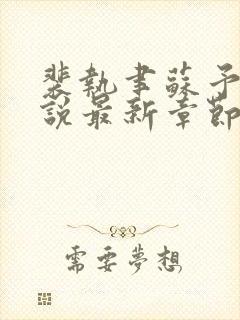 裴執聿蘇予
說最新章節
需要夢想